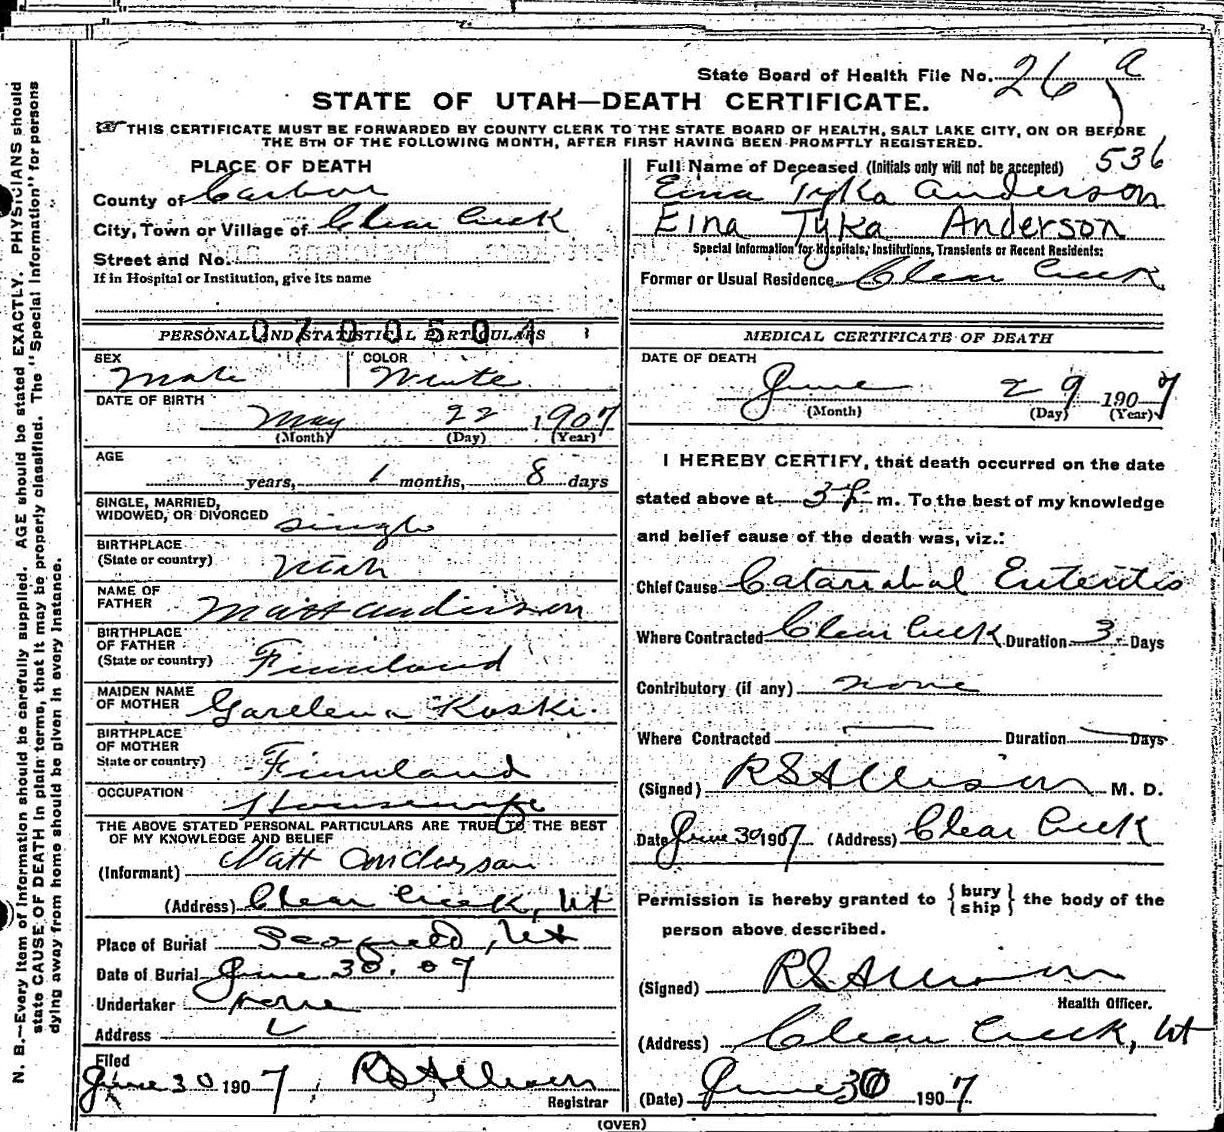 State Board of Health File No. 26 a
STATE OF UTAH—DEATH CERTIFICATE.
THIS CERTIFICATE MUST BE FORWARDED BY COUNTY CLERK TO THE STATE BOARD OF HEALTH, SALT LAKE CITY, ON OR BEFORE
THE 5TH OF THE FOLLOWING MONTH, AFTER FIRST HAVING BEEN PROMPTLY REGISTERED.
536
PLACE OF DEATH
County of Carbon
City, Town or Village of Clear Creek
Street and No.
If in Hospital or Institution, give its name
Full Name of Deceased (Initials only will not be accepted)
Eina Tyka Anderson
Eina Tyka Anderson
Special Information for Hospitals, Institutions, Transients or Recent Residents:
Former or Usual Residence Clear Creek
PERSONAL AND STATISTICAL PARTICULARS
0700504
SEX Male
COLOR White
DATE OF BIRTH
May 22 1907
(Month) (Day) (Year)
AGE
years, 1 months, 8 days
SINGLE, MARRIED,
WIDOWED, OR DIVORCED single
BIRTHPLACE
(State or country) Utah
NAME OF
FATHER Matt Anderson
BIRTHPLACE
OF FATHER
(State or country) Finnland
MAIDEN NAME
OF MOTHER Koski.
BIRTHPLACE
OF MOTHER
State or country) Finnland
OCCUPATION Housewife
THE ABOVE STATED PERSONAL PARTICULARS ARE TRUE TO THE BEST
OF MY KNOWLEDGE AND BELIEF
(Informant) Matt Anderson
(Address) Clear Creek, Ut
Place of Burial , Ut
Date of Burial June 30. 07
Undertaker none
Address
Filed
June 30 1907, RS Allison
Registrar
MEDICAL CERTIFICATE OF DEATH
DATE OF DEATH
June 29 1907
(Month) (Day) (Year)
I HEREBY CERTIFY, that death occurred on the date
stated above at 3 P m. To the best of my knowledge
and belief cause of the death was, viz.:
Chief Cause Catarrahal Enteritis
Where Contracted Clear Creek Duration 3 Days
Contributory (if any) none
Where Contracted — Duration — Days
(Signed) RS Allison M. D.
Date June 30 1907 (Address) Clear Creek
Permission is hereby granted to { bury ship } the body of the
person above described.
(Signed) RS Allison
Health Officer.
(Address) Clear Creek, Ut
(Date) June 30 1907
(OVER)
N. B.—Every item of information should be carefully supplied. AGE should be stated EXACTLY. PHYSICIANS should
state CAUSE OF DEATH in plain terms, that it may be properly classified. The "Special Information" for persons
dying away from home should be given in every instance.